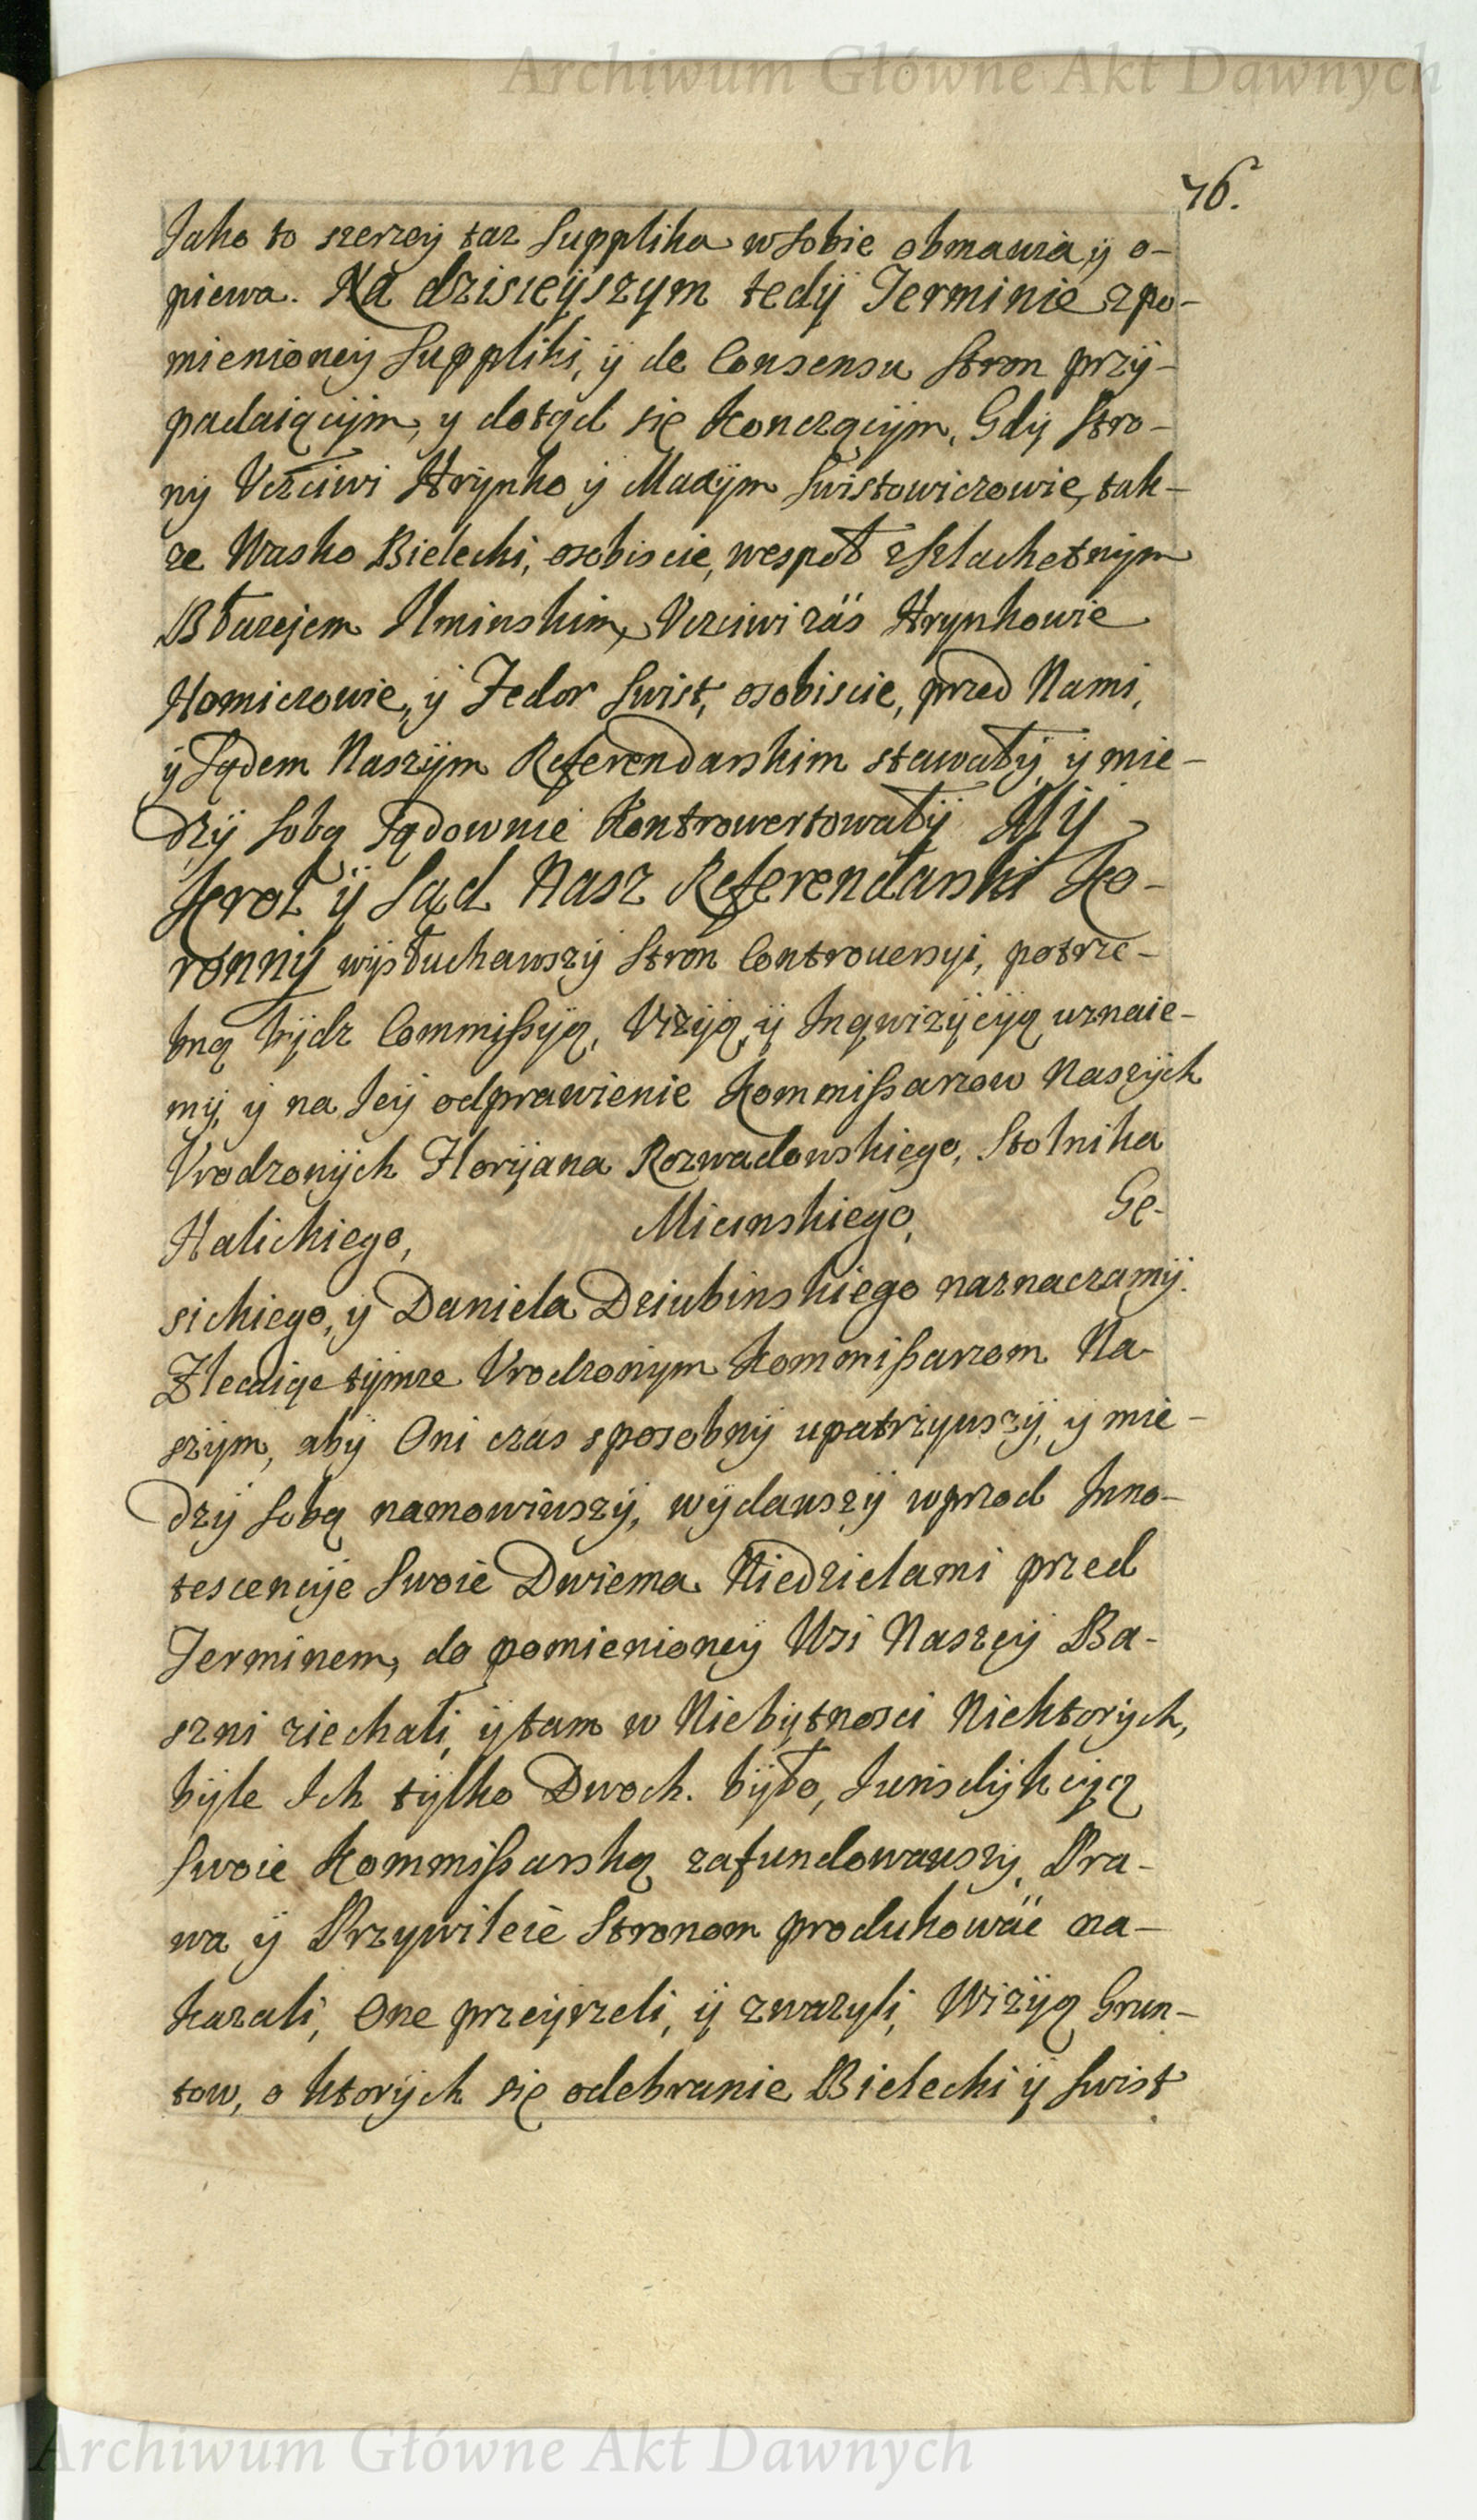 Archiwum Główne Akt Dawnych
76.
Jako to szerzeÿ taz Supplika w sobie obmawia, ÿ o-
piewa. Na dzisieÿszym tedÿ Terminie z po-
mienioneÿ Suppliki, ÿ de Consensu Stron przÿ-
padaiącÿm, y dotąd się konczącÿm, Gdÿ Stro-
nÿ Vczciwi Hrÿnko ÿ Maxÿm Swistowiczowie, tak-
ze Wasko Bielecki, osobiscie, wespoł z Szlachetnÿm
Błazejem Uminskim, Vczciwi zäs Hrynkowie
Homiczowie, ÿ Fedor Swist, osobiscie, przed Nami,
ÿ Sądem Naszÿm Referendarskim stawałÿ, ÿ mie-
dzÿ sobą Sądownie Kontrowertowałÿ Mÿ
Krol ÿ Sąd Nasz Referendarski Ko-
ronnÿ wÿsłuchawszÿ Stron Controuersyi, potrze-
bną bÿdz Commißÿą, Vizÿą, ÿ Inqwizÿcÿą uznaie-
mÿ, ÿ na Jeÿ odprawienie Kommißarzow Naszÿch
Vrodzonÿch Florÿana Rozwadowskiego, Stolnika
Halickiego, Miernskiego, Gę-
sickiego, ÿ Daniela Dziubinskiego naznaczamÿ.
Zlecaiąc tÿmze Vrodzonÿm Kommißarzom Na-
szÿm, abÿ Oni czas sposobnÿ upatrzÿwszÿ, ÿ mie-
dzÿ sobą namowiwszÿ, wÿdawszÿ wprzod Inno-
tescencÿe Swoie Dwiema Niedzielami przed
Terminem, do pomienioneÿ Wsi Naszeÿ Ba-
szni ziechali, ÿ tam w Niebÿtnosci Niektorÿch,
bÿle Ich tÿlko Dwoch. bÿło, Jurisdÿkcÿą
Swoie Kommißarską zafundowawszÿ, Pra-
wa ÿ Przywileie Stronom produkowäc na-
kazali, One przeÿrzeli, ÿ zwazyli, Wizÿą Grun-
tow, o ktorÿch się odebranie Bielecki ÿ Swist
Archiwum Główne Akt Dawnych